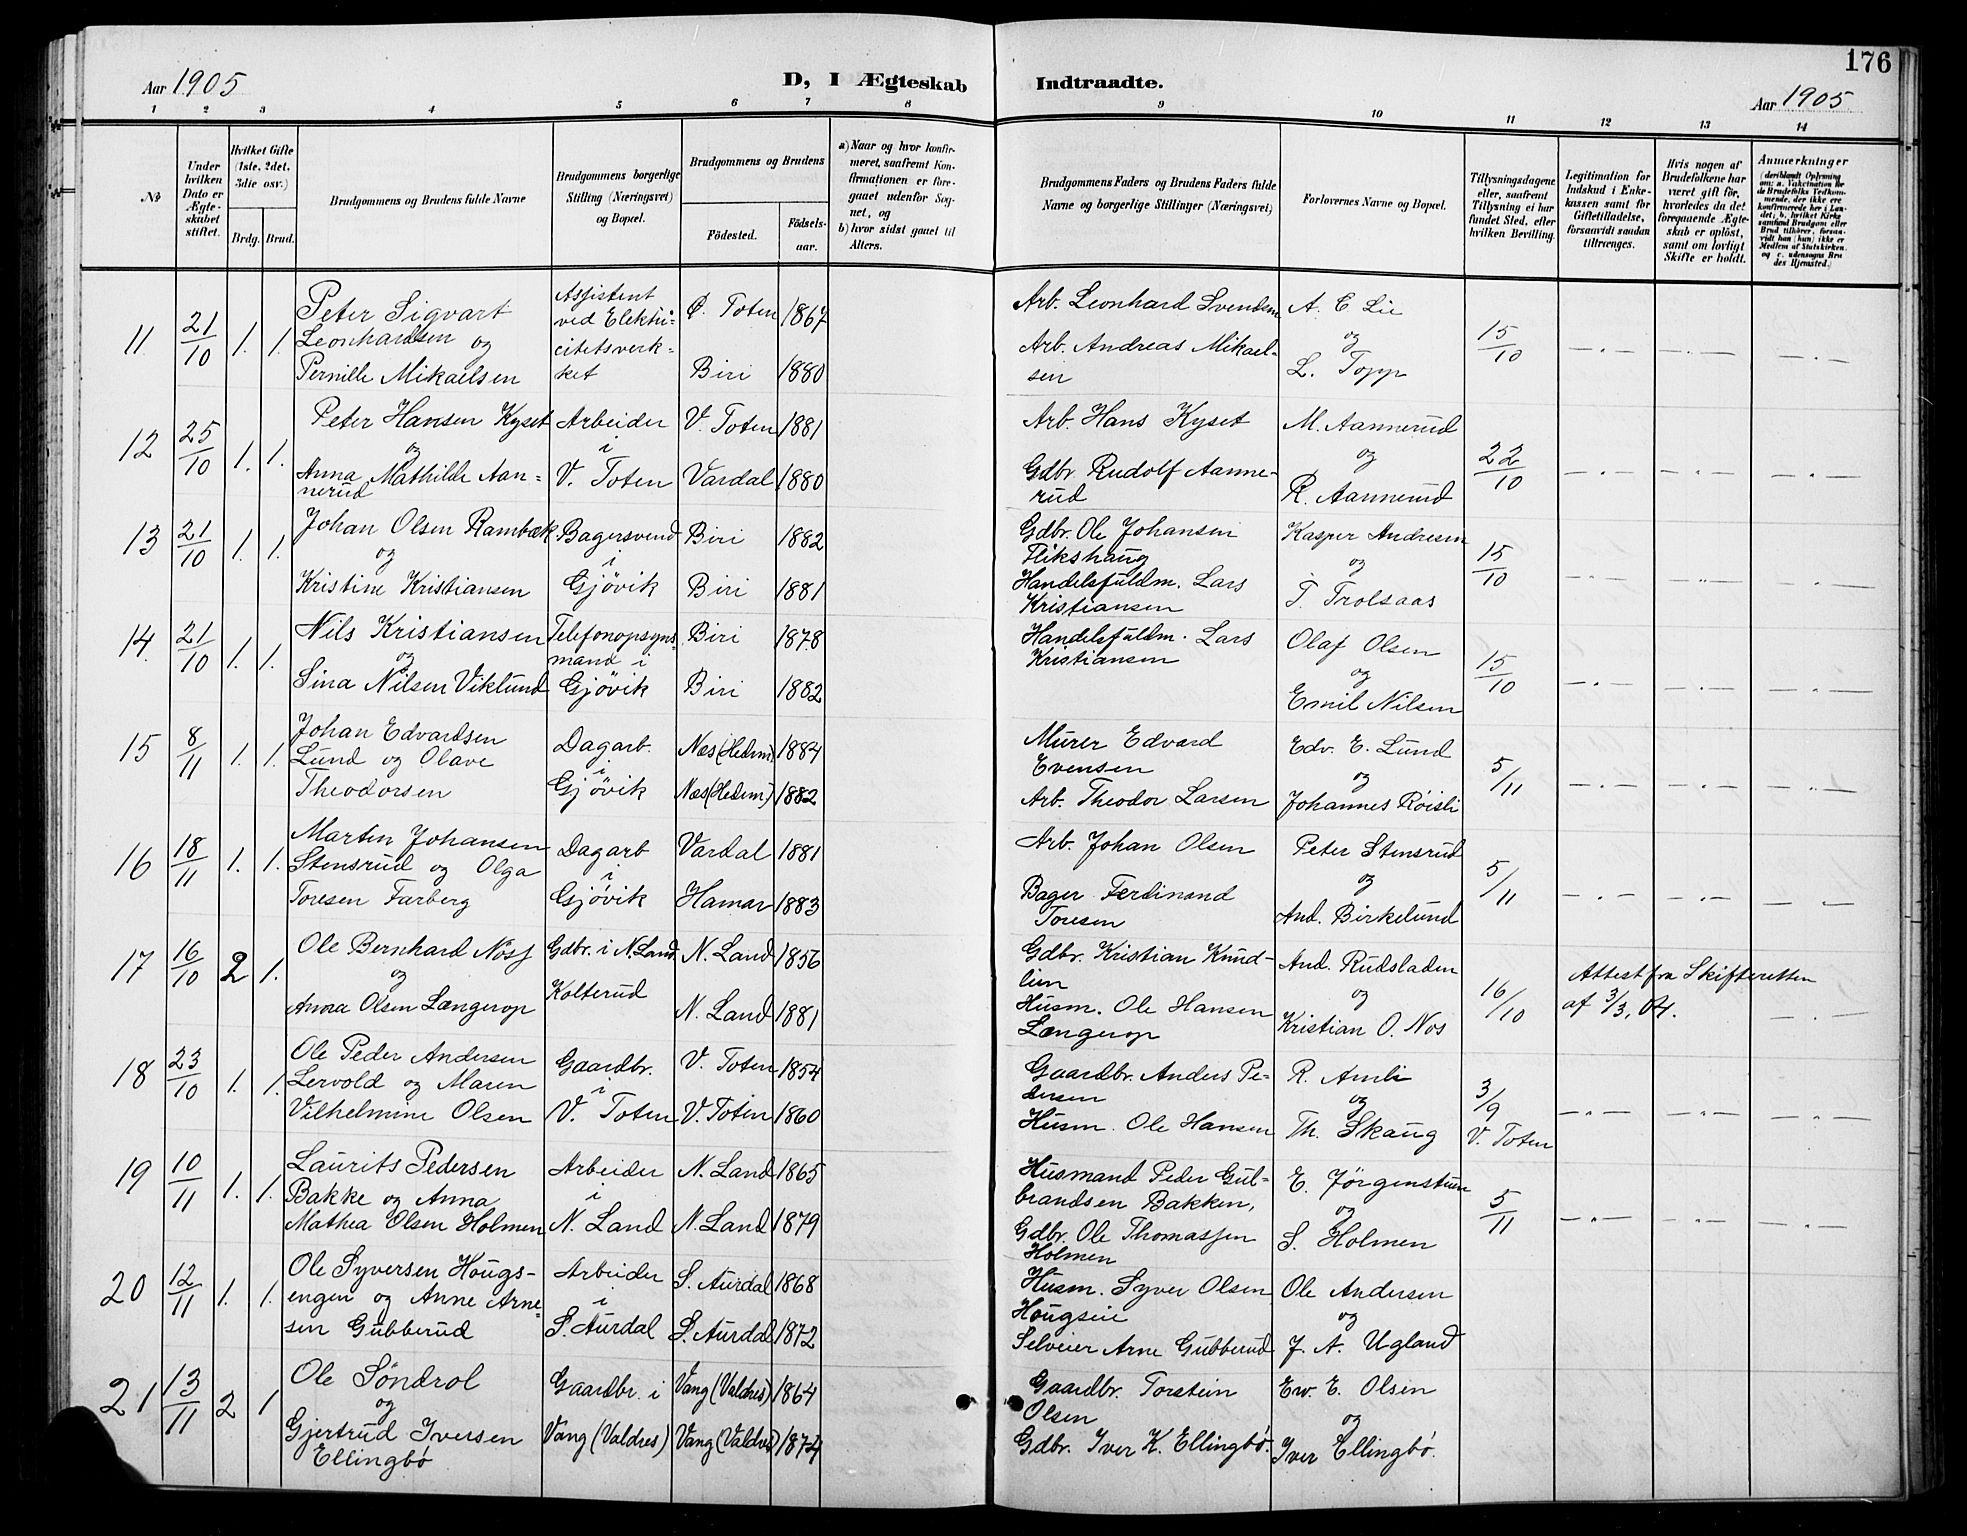 176
Aar 1905
D, I Ægteskab Indtraadte.
Aar 1905
1 2 3 4 5 6 7 8 9 10 11 12 13 14
№
Under hvilken Dato er Ægteskabet stiftet.
Hvilket Gifte (1ste, 2det, 3die osv.)
Brdg. Brud.
Brudgommens og Brudens fulde Navne
Brudgommens borgerlige Stilling (Næringsvei) og Bopæl.
Brudgommens og Brudens
Fødested.
Fødselsaar.
a) Naar og hvor konfirmeret, saafremt Konfirmationen er foregaaet udenfor Sognet, og
b) hvor sidst gaaet til Alters.
Brudgommens Faders og Brudens Faders fulde Navne og borgerlige Stillinger (Næringsvei)
Forlovernes Navne og Bopæl.
Tillysningsdagene eller, saafremt Tillysning ei har fundet Sted, efter hvilken Bevilling.
Legitimation for Indskud i Enkekassen samt for Giftetilladelse, forsaavidt saadan tiltrænges.
Hvis nogen af Brudefolkene har været gift før, hvorledes da det foregaaende Ægteskab er opløst, samt om lovligt Skifte er holdt.
Anmærkninger (deriblandt Oplysning om: a. Vakcination for de Brudefolks Vedkommende, der ikke ere konfirmerede her i Landet; b. hvilket Kirkesamfund Brudgom eller Brud tilhører, forsaavidt han (hun) ikke er Medlem af Statskirken, og c. udensogns Brudes Hjemsted.)
11. 21/10 1. 1. Peter Sigvart Leonhardsen og Pernille Mikaelsen
Assistent ved Elektricitetsverkket
Ø. Toten 1867
Biri 1880
Arb. Leonhard Svendsen
Arb. Andreas Mikaelsen
A. E Lie og L. Topp
15/10 —"— —"— —"—
12 25/10 1. 1. Peter Hansen Kyset og Anna Mathilde Aannerud
Arbeider i V. Toten
V. Toten 1881
Vardal 1880
Arb. Hans Kyset
Gdbr Rudolf Aannerud
M. Aannerud og R. Aannerud
22/10 —"— —"— —"—
13 21/10 1. 1. Johan Olsen Rambæk og Kristine Kristiansen
Bagersvend i Gjövik
Biri 1882
Biri 1881
Gdbr. Ole Johansen Flikshaug
Handelsfuldm. Lars Kristiansen
Kasper Andresen og T. Trolsaas
15/10 —"— —"— —"—
14. 21/10 1. 1. Nils Kristiansen og Sina Nilsen Viklund
Telefonopsynsmand i Gjövik
Biri 1878
Biri 1882
Handelsfuldm. Lars Kristiansen
Olaf Olsen og Emil Nilsen
15/10 —"— —"— —"—
15 8/11 1. 1. Johan Edvardsen Lund og Olave Theodorsen
Dagarb. i Gjövik
Næs (Hedem) 1884
Næs (Hedem) 1882
Murer Edvard Evensen
Arb. Theodor Larsen
Edv. E. Lund og Johannes Röisli
5/11 —"— —"— —"—
16 18/11 1. 1. Martin Johansen Stensrud og Olga Toresen Farberg
Dagarb i Gjövik
Vardal 1881
Hamar 1883
Arb. Johan Olsen
Bager Ferdinand Toresen
Peter Stensrud og And. Birkelund
5/11 —"— —"— —"—
17 16/10 2 1. Ole Bernhard Nöss og Anna Olsen Længerop
Gdbr. i N. Land Kolterud
N. Land 1856
N. Land 1881
Gdbr. Kristian Knudlien
Husm. Ole Hansen Længerop
And. Rudsladen og Kristian O. Nos
16/10 Attest fra Skifteretten af 3/3, 04. —"—
18 23/10 1. 1. Ole Peder Andersen Lervold og Maren Vilhelmine Olsen
Gaardbr. i V. Toten
V. Toten 1854
V. Toten 1860
Gaardbr. Anders Pedersen
Husm. Ole Hansen
R. Amli og Th. Skaug
3/9 V. Toten —"— —"— —"—
19 10/11 1. 1. Laurits Pedersen Bakke og Anna Mathea Olsen Holmen
Arbeider i N. Land
N. Land 1865
N. Land 1879
Husmand Peder Gulbrandsen Bakken,
Gdbr. Ole Thomassen Holmen
E. Jörgenstuen og S. Holmen
5/11 —"— —"— —"—
20 12/11 1. 1. Ole Syversen Hougsengen og Anne Arnesen Gubberud
Arbeider i S. Aurdal
S. Aurdal 1868
S. Aurdal 1872
Husm. Syver Olsen Hougseie
Selveier Arne Gubberud
Ole Andersen og J. A. Ugland
21 13/11 2 1 Ole Söndrol og Gjertrud Iversen Ellingbö
Gaardbr. i Vang (Valdres)
Vang (Valdres) 1864
Vang (Valdres) 1874
Gaardbr. Torstein Olsen
Gdbr. Iver K. Ellingbö.
Ew. E. Olsen og Iver Ellingbö.